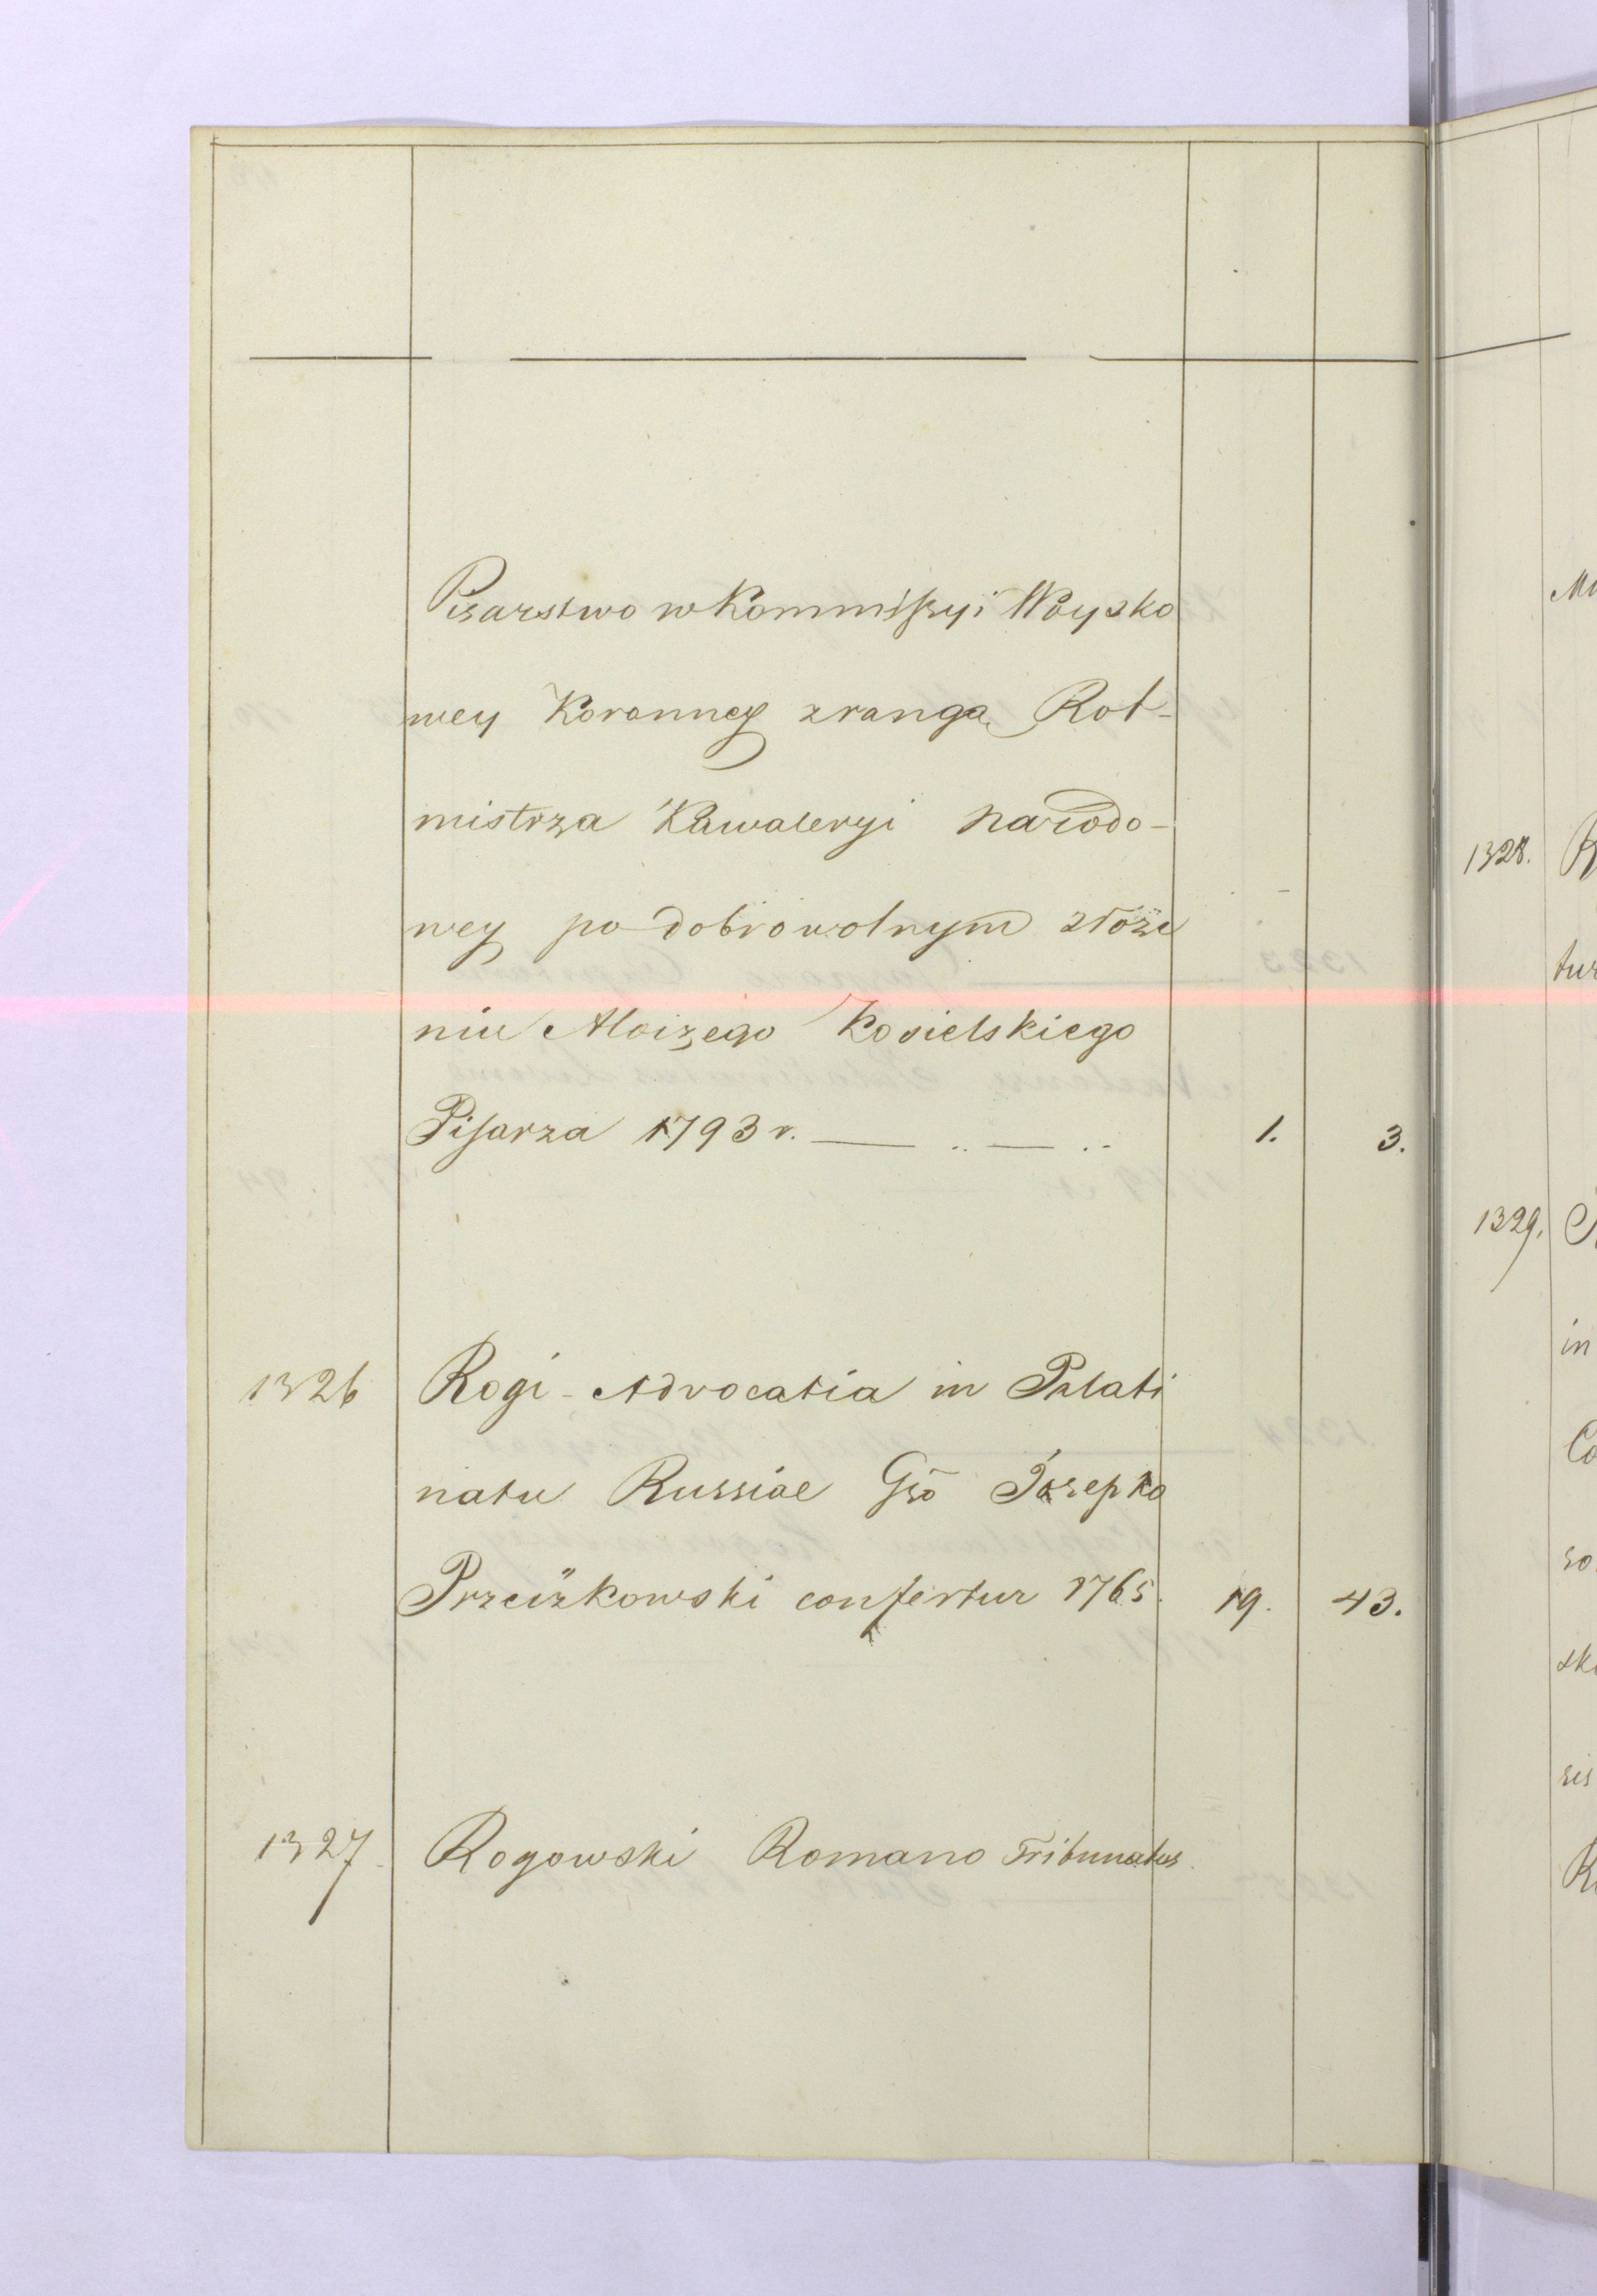 Pisarstwo w Kommissyi Woysko
wey Koronney z rangą Rot-
mistrza Kawaleryi narodo-
wey po dobrowolnym złoże
niu Aloizego Kosielskiego
Pisarza 1793 r. 1. 3.
1326 Rogi - Advocatia in Palati
natu Russiae Gso Josepho
Przeciżkowski confertur 1765. 19. 43.
1327 Rogowski Romano Tribunatus
1328.
tur
1329.
in